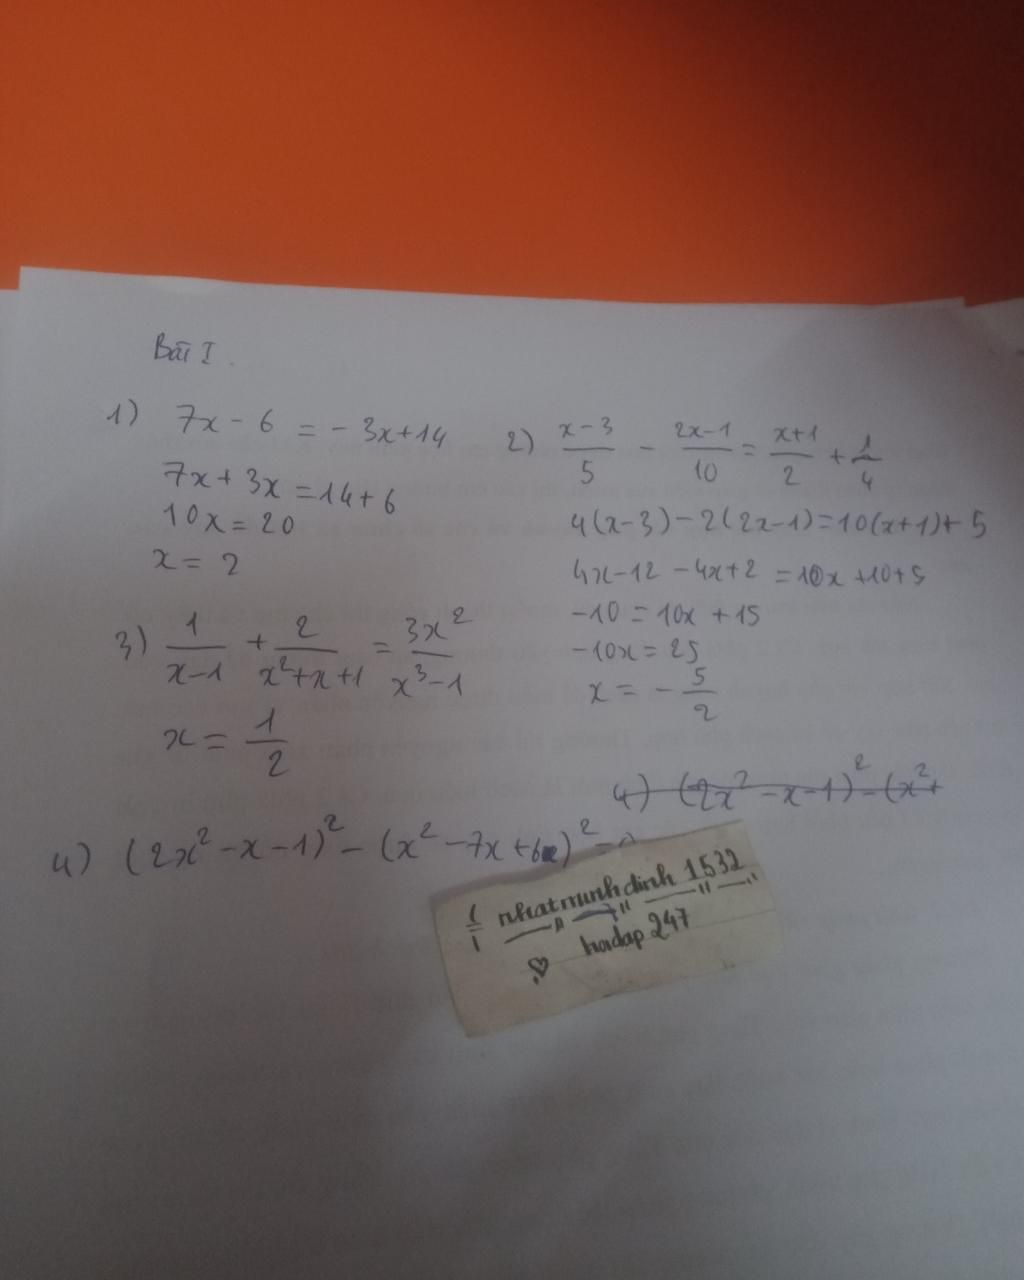 Bài I.
1) 7x - 6 = - 3x + 14
7x + 3x = 14 + 6
10x = 20
x = 2
2) (x-3)/5 - (2x-1)/10 = (x+1)/2 + 1/4
4(x-3) - 2(2x-1) = 10(x+1) + 5
4x - 12 - 4x + 2 = 10x + 10 + 5
-10 = 10x + 15
-10x = 25
x = - 5/2
3) 1/(x-1) + 2/(x²+x+1) = 3x²/(x³-1)
x = 1/2
4) (2x² - x - 1)² - (x² +
4) (2x² - x - 1)² - (x² - 7x + 6)² =
nhatminhdinh 1532
hoidap 247